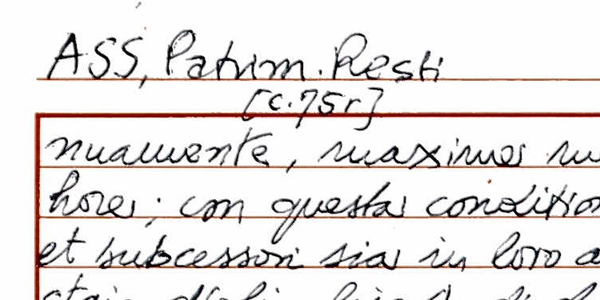 ASS, Patrim. Resti
[c.75r]
nuamente, maxime
hore; con questa condition
et subcessori sia in loro a